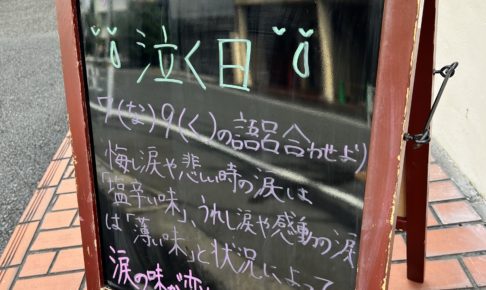 泣く日
7(な)9(く)の語合わせより)
悔し涙や悲しい時の涙は
「塩辛い味」、うれし涙や感動の涙
は「薄い味」と状況によって
涙の味が変